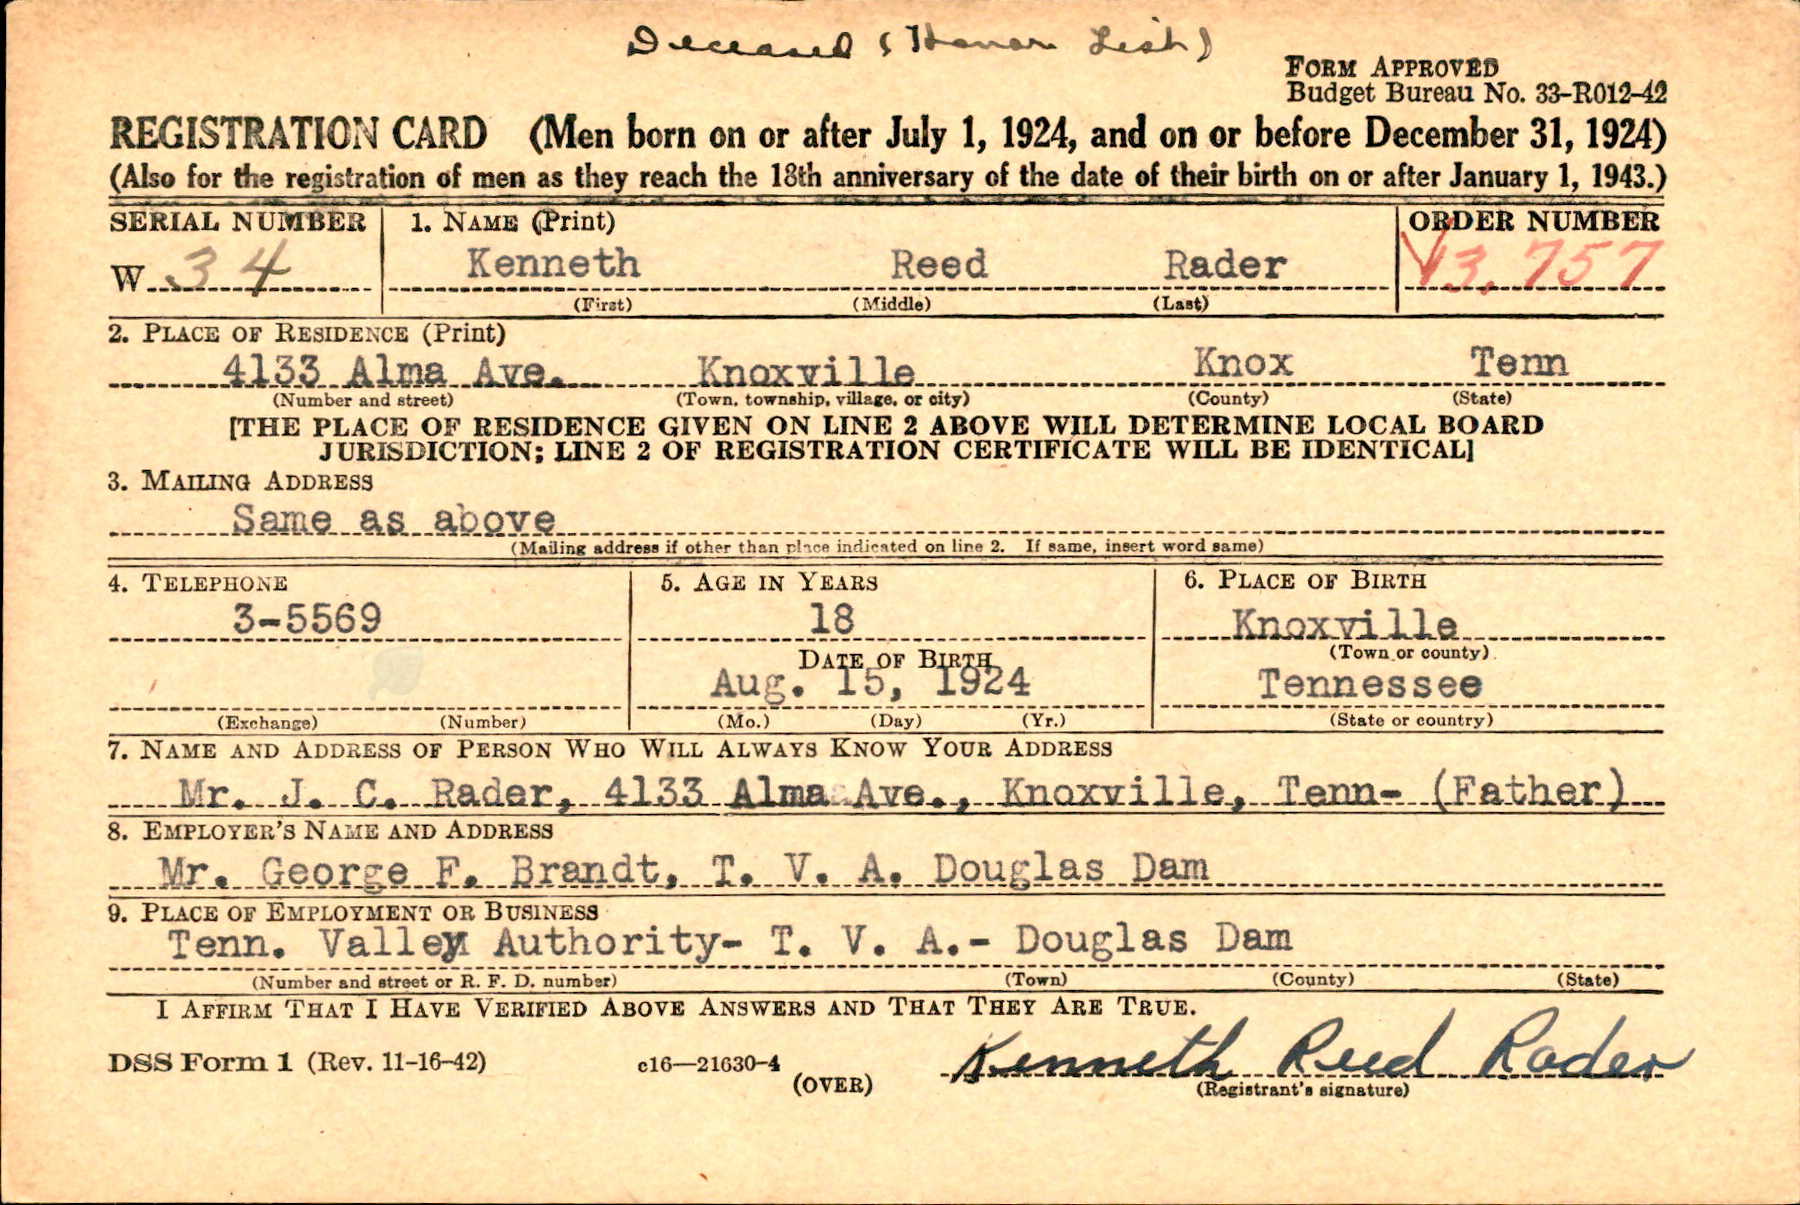 Deceased (Honor List)
FORM APPROVED
Budget Bureau No. 33-R012-42
REGISTRATION CARD (Men born on or after July 1, 1924, and on or before December 31, 1924)
(Also for the registration of men as they reach the 18th anniversary of the date of their birth on or after January 1, 1943.)
SERIAL NUMBER 1. NAME (Print) ORDER NUMBER
W 34 Kenneth Reed Rader 13,757
(First) (Middle) (Last)
2. PLACE OF RESIDENCE (Print)
4133 Alma Ave. Knoxville Knox Tenn
(Number and street) (Town, township, village, or city) (County) (State)
[THE PLACE OF RESIDENCE GIVEN ON LINE 2 ABOVE WILL DETERMINE LOCAL BOARD
JURISDICTION; LINE 2 OF REGISTRATION CERTIFICATE WILL BE IDENTICAL]
3. MAILING ADDRESS
Same as above
(Mailing address if other than place indicated on line 2. If same, insert word same)
4. TELEPHONE 5. AGE IN YEARS 6. PLACE OF BIRTH
3-5569 18 Knoxville
DATE OF BIRTH (Town or county)
Aug. 15, 1924 Tennessee
(Exchange) (Number) (Mo.) (Day) (Yr.) (State or country)
7. NAME AND ADDRESS OF PERSON WHO WILL ALWAYS KNOW YOUR ADDRESS
Mr. J. C. Rader, 4133 Alma Ave., Knoxville, Tenn- (Father)
8. EMPLOYER'S NAME AND ADDRESS
Mr. George F. Brandt, T. V. A. Douglas Dam
9. PLACE OF EMPLOYMENT OR BUSINESS
Tenn. Valley Authority- T. V. A.- Douglas Dam
(Number and street or R. F. D. number) (Town) (County) (State)
I AFFIRM THAT I HAVE VERIFIED ABOVE ANSWERS AND THAT THEY ARE TRUE.
DSS Form 1 (Rev. 11-16-42) c16—21630-4 Kenneth Reed Rader
(OVER) (Registrant's signature)